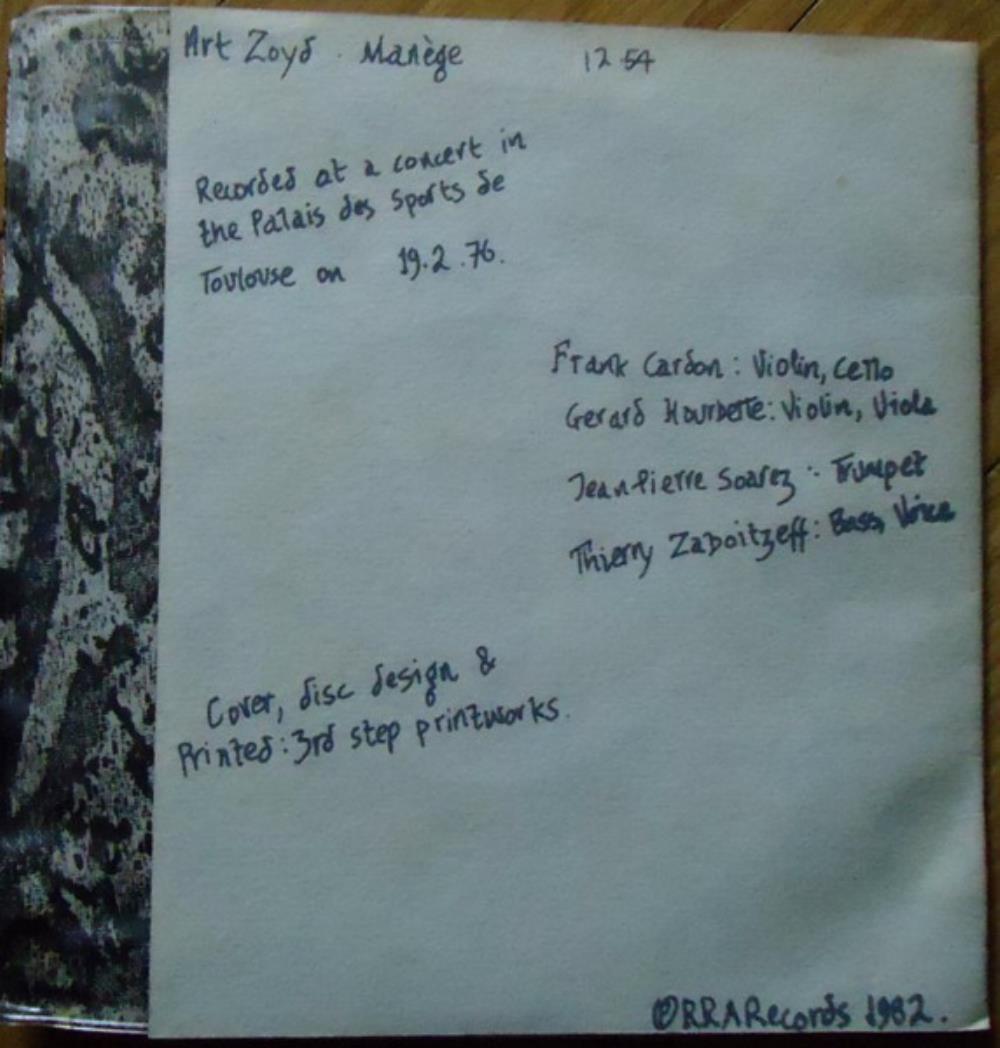 Art Zoyd . Manège 12 54
Recorded at a concert in
the Palais des Sports de
Toulouse on 19.2.76.
Frank Cardon : Violin, cello
Gerard Hourbette: Violin, Viola
Jean-Pierre Soarez : Trumpet
Thierry Zaboitzeff: Bass, Voice
Cover, disc design &
Printed: 3rd step printworks.
℗RRARecords 1982.